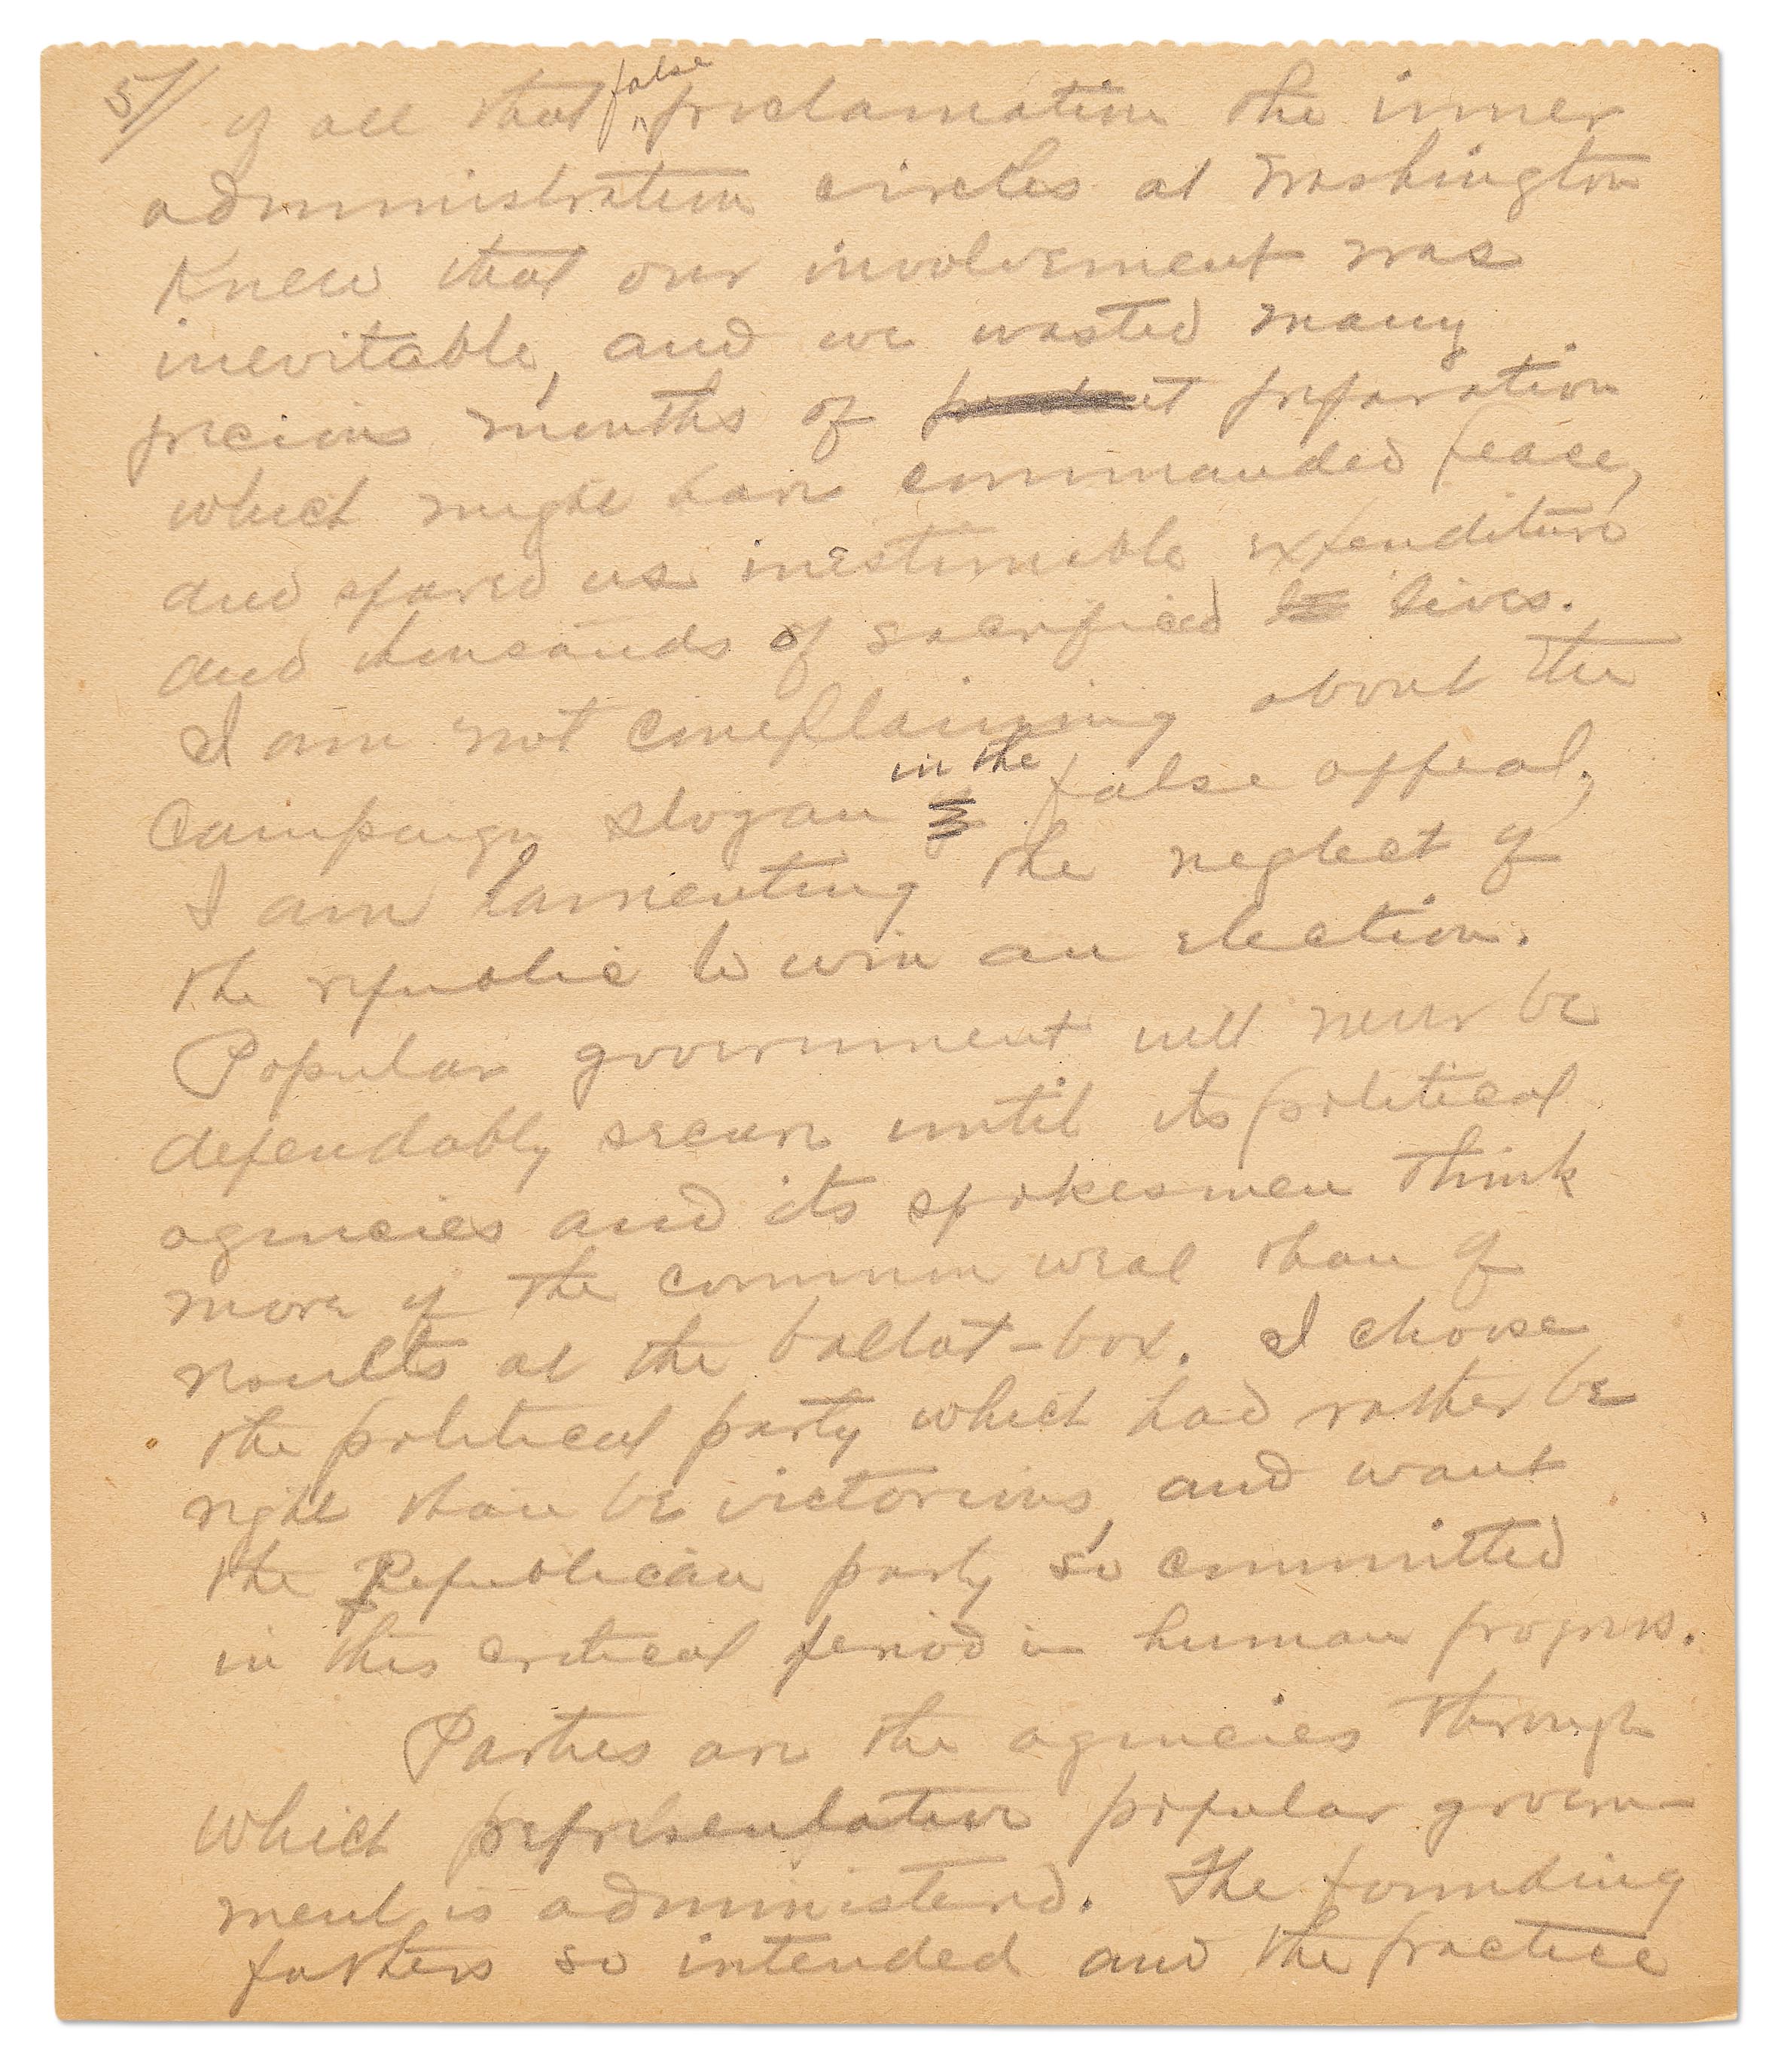 5/ of all that false proclamation the inner
administration circles at Washington
knew that our involvement was
inevitable, and we wasted many
precious months of preparation
which might have commanded peace,
and spared us inestimable expenditure
and thousands of sacrificed lives.
I am not complaining about the
campaign slogan in the false appeal,
I am lamenting the neglect of
the republic to win an election.
Popular government will never be
dependably secure until its political
agencies and its spokesmen think
more of the common weal than of
results at the ballot-box. I choose
the political party which had rather be
right than be victorious, and want
the Republican party so committed
in this critical period in human progress.
Parties are the agencies through
which representative popular govern-
ment is administered. The founding
fathers so intended and the practice